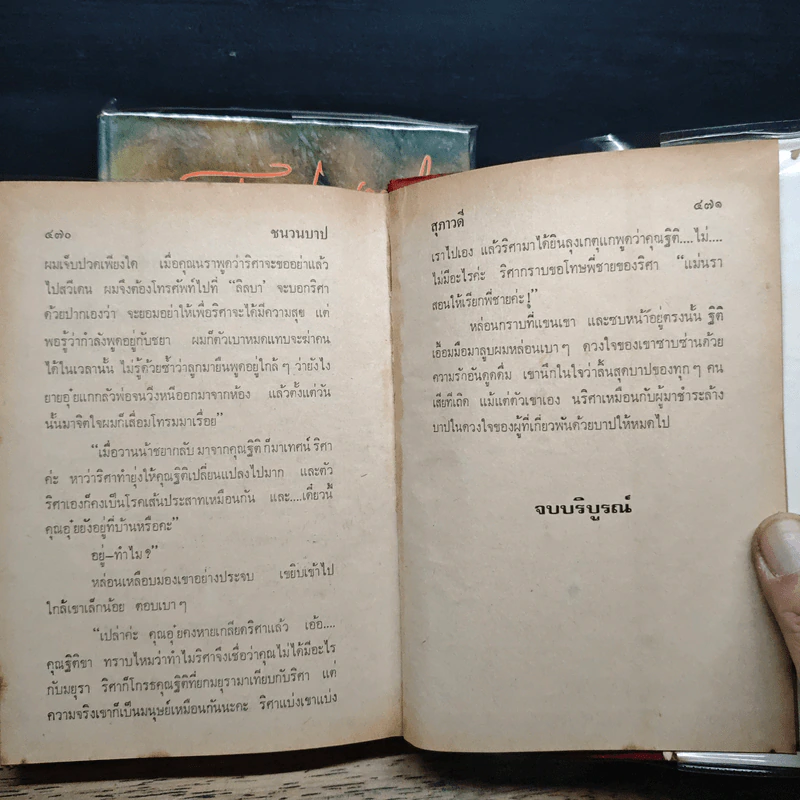 ๔๗๐ ชนวนบาป
ผมเจ็บปวดเพียงใด เมื่อคุณนราพูดว่าริศาจะขออย่าแล้ว
ไปสวีเดน ผมจึงต้องโทรศัพท์ไปที่ “ลิลบา’ จะบอกริศา
ด้วยปากเองว่า จะยอมอย่าให้เพื่อริศาจะได้มีความสุข แต่
พอรู้ว่ากำลังพูดอยู่กับชยา ผมก็ตัวเบาหมดแทบจะฆ่าคน
ได้ในเวลานั้น ไม่รู้ด้วยซ้ำว่าลูกมายืนพูดอยู่ใกล้ ๆ ว่ายังไง
ยายอุ๋ยแกกลัวพ่อจนวิ่งหนีออกมาจากห้อง แล้วตั้งแต่วัน
นั้นมาจิตใจผมก็เสื่อมโทรมมาเรื่อย”
“เมื่อวานน้าชยากลับ มาจากคุณฐิติ ก็มาเทศน์ ริศา
ค่ะ หาว่าริศาทำยุ่งให้คุณฐิติเปลี่ยนแปลงไปมาก และตัว
ริศาเองก็คงเป็นโรคเส้นประสาทเหมือนกัน และ....เดี๋ยวนี้
คุณอุ๋ยยังอยู่ที่บ้านหรือคะ”
อยู่–ทำไม ?”
หล่อนเหลือบมองเขาอย่างประจบ เขยิบเข้าไป
ใกล้เขาเล็กน้อย ตอบเบา ๆ
“เปล่าค่ะ คุณอุ๋ยคงหายเกลียดริศาแล้ว เอ้อ....
คุณฐิติขา ทราบไหมว่าทำไมริศาจึงเชื่อว่าคุณไม่ได้มีอะไร
กับมยุรา ริศาก็โกรธคุณฐิติที่ยกมยุรามาเทียบกับริศา แต่
ความจริงเขาก็เป็นมนุษย์เหมือนกันนะคะ ริศาแบ่งเขาแบ่ง
สุภาวดี ๔๗๑
เราไปเอง แล้วริศามาได้ยินลุงเกตุแกพูดว่าคุณฐิติ....ไม่....
ไม่มีอะไรค่ะ ริศากราบขอโทษพี่ชายของริศา “แม่นรา
สอนให้เรียกพี่ชายค่ะ!”
หล่อนกราบที่แขนเขา และซบหน้าอยู่ตรงนั้น ฐิติ
เอื้อมมือมาลูบผมหล่อนเบา ๆ ดวงใจของเขาซาบซ่านด้วย
ความรักอันดูดดื่ม เขานึกในใจว่าสิ้นสุดบาปของทุก ๆ คน
เสียทีเถิด แม้แต่ตัวเขาเอง นริศาเหมือนกับผู้มาชำระล้าง
บาปในดวงใจของผู้ที่เกี่ยวพันด้วยบาปให้หมดไป
จบบริบูรณ์